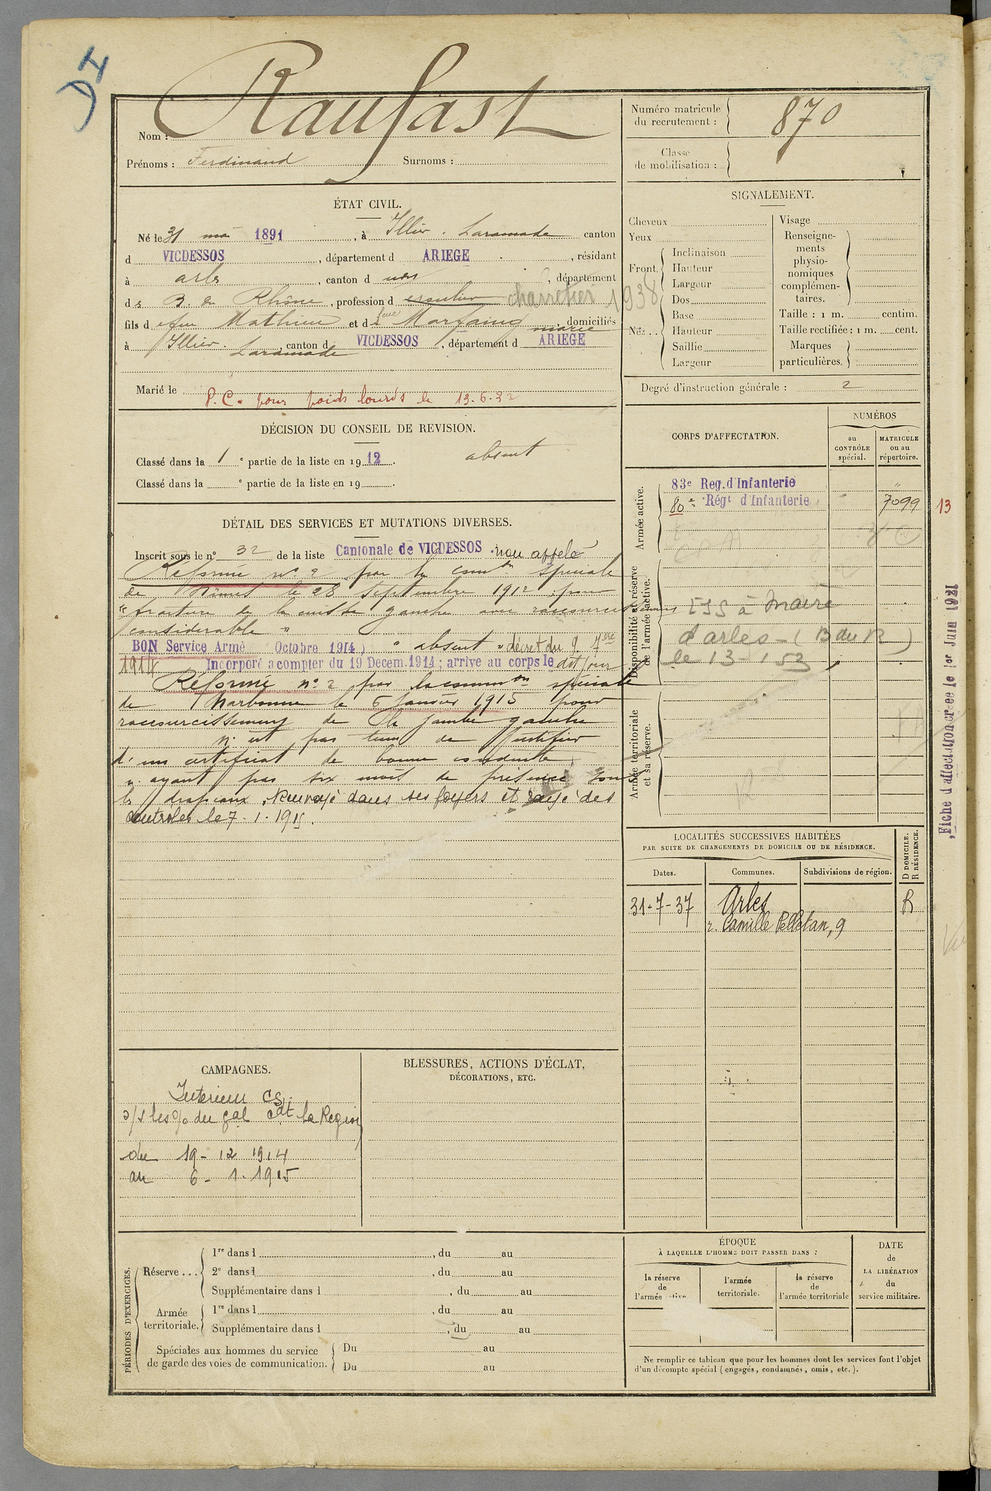 Nom : Raufast
Prénoms : Ferdinand Surnoms :
Numéro matricule du recrutement : 870
Classe de mobilisation :
ÉTAT CIVIL.
Né le 31 mai 1891, à Illier. Laramade canton
d VICDESSOS, département d ARIEGE, résidant
à arles, canton d , département
d s B. du Rhône, profession d charretier 1938
fils d e feu Mathieu et d domiciliés
marie
à Illier. Laramade, canton d VICDESSOS, département d ARIEGE
Marié le
P.C. pour poids lourds le 13.6.32
DÉCISION DU CONSEIL DE REVISION.
Classé dans la 1 e partie de la liste en 1912. absent
Classé dans la e partie de la liste en 19 .
DÉTAIL DES SERVICES ET MUTATIONS DIVERSES.
Inscrit sous le n° 32 de la liste Cantonale de VICDESSOS . non appelé
Réformé n° 2 par la comon spéciale
de Nimes le 28 septembre 1912 pour
"fracture de la cuisse gauche avec raccourcissement
considérable"
BON Service Armé Octobre 1914) "absent" décret du 9. 7bre
1914 Incorporé a compter du 19 Decem.1914 ; arrive au corps le dit jour
Réformé n° 2 par la common spéciale
de Narbonne le 6 janvier 1915 pour
raccourcissement de la jambe gauche
n'est pas tenu de justifier
d'un certificat de bonne conduite,
n'ayant pas six mois de présence sous
les drapeaux. Renvoyé dans ses foyers et rayé des
contrôles le 7.1.1915.
CAMPAGNES.
Intérieur CS.
s/s les o/o du gal cdt la Région
du 19-12 1914
au 6-1-1915
BLESSURES, ACTIONS D'ÉCLAT,
DÉCORATIONS, ETC.
PÉRIODES D'EXERCICES.
Réserve ...
1re dans l , du au
2e dans l , du au
Supplémentaire dans l , du au
Armée territoriale.
1re dans l , du au
Supplémentaire dans l , du au
Spéciales aux hommes du service de garde des voies de communication.
Du au
Du au
SIGNALEMENT.
Cheveux
Yeux
Front.
Inclinaison
Hauteur
Largeur
Nez ..
Dos
Base
Hauteur
Saillie
Largeur
Visage
Renseignements physionomiques complémentaires.
Taille : 1 m. centim.
Taille rectifiée : 1 m. cent.
Marques particulières.
Degré d'instruction générale : 2
CORPS D'AFFECTATION.
NUMÉROS
au CONTRÔLE spécial.
MATRICULE ou au répertoire.
Armée active.
83e Reg. d'Infanterie "
80e Régt d'Infanterie " 7099
13
Disponibilité et réserve de l'armée active.
ESS à Maire
d'arles - (B du R)
le 13-1 53
Armée territoriale et sa réserve.
Fiche d'affectation créée le 1er Juin 1921
LOCALITÉS SUCCESSIVES HABITÉES
PAR SUITE DE CHANGEMENTS DE DOMICILE OU DE RÉSIDENCE.
Dates. Communes. Subdivisions de région. D DOMICILE. R RÉSIDENCE.
31-7-37 Arles R
r. Camille Pelletan, 9
ÉPOQUE
À LAQUELLE L'HOMME DOIT PASSER DANS :
la réserve de l'armée active
l'armée territoriale.
la réserve de l'armée territoriale
DATE de LA LIBÉRATION du service militaire.
Ne remplir ce tableau que pour les hommes dont les services font l'objet
d'un décompte spécial (engagés, condamnés, omis, etc.).